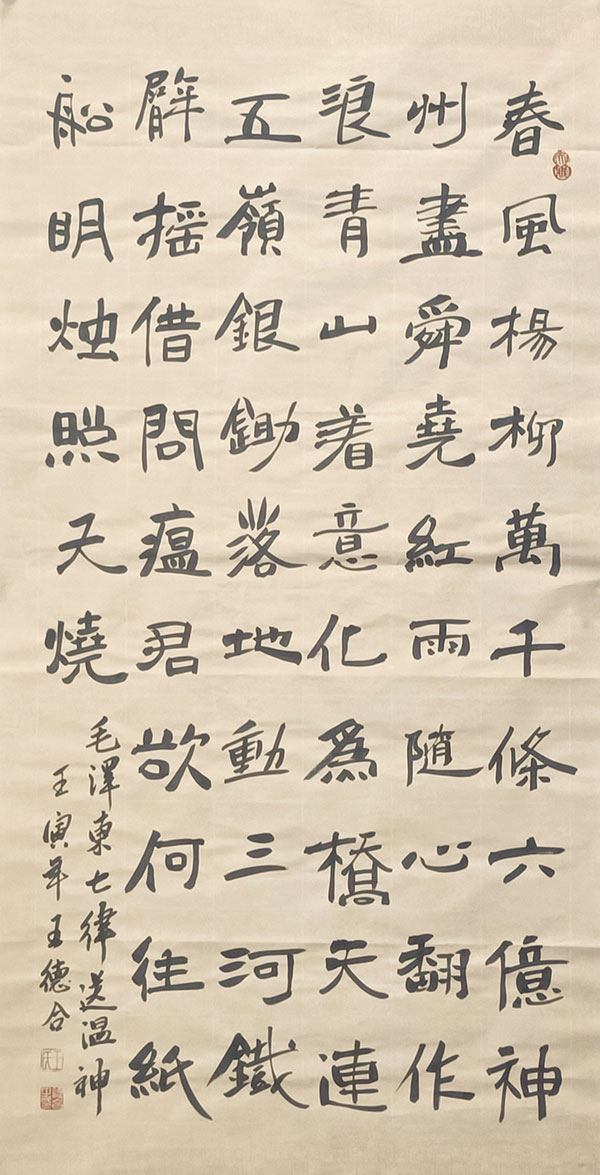 春風楊柳萬千條六億神
州盡舜堯紅雨随心翻作
浪青山着意化為橋天連
五嶺銀鋤落地動三河鐵
臂摇借問瘟君欲何往紙
船明烛照天燒
毛澤東七律送温神
壬寅年王德合